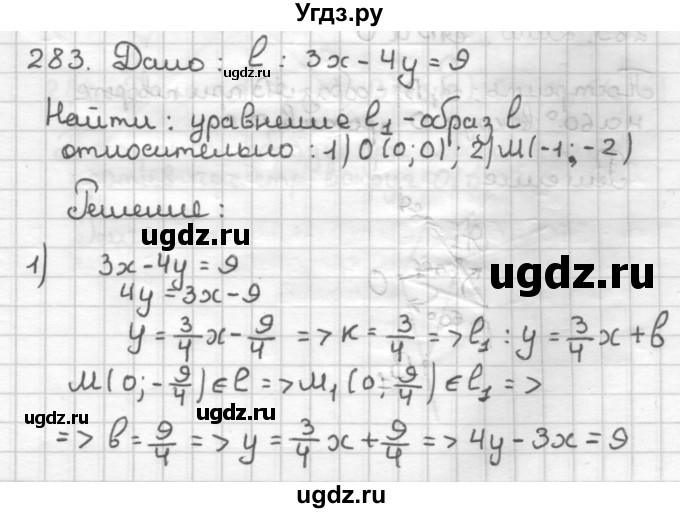 Угдз.ру
283. Дано: l: 3x - 4y = 9
ugdz.ru
Найти: уравнение l₁ - образ l
относительно: 1) O(0; 0); 2) M(-1; -2)
Решение:
ugdz.ru
1) 3x - 4y = 9
4y = 3x - 9
ugdz.ru
y = 3/4 x - 9/4 => k = 3/4 => l₁: y = 3/4 x + b
M(0; -9/4) ∈ l => M₁(0; 9/4) ∈ l₁ =>
ugdz.ru ugdz.ru
=> b = 9/4 => y = 3/4 x + 9/4 => 4y - 3x = 9
ugdz.ru